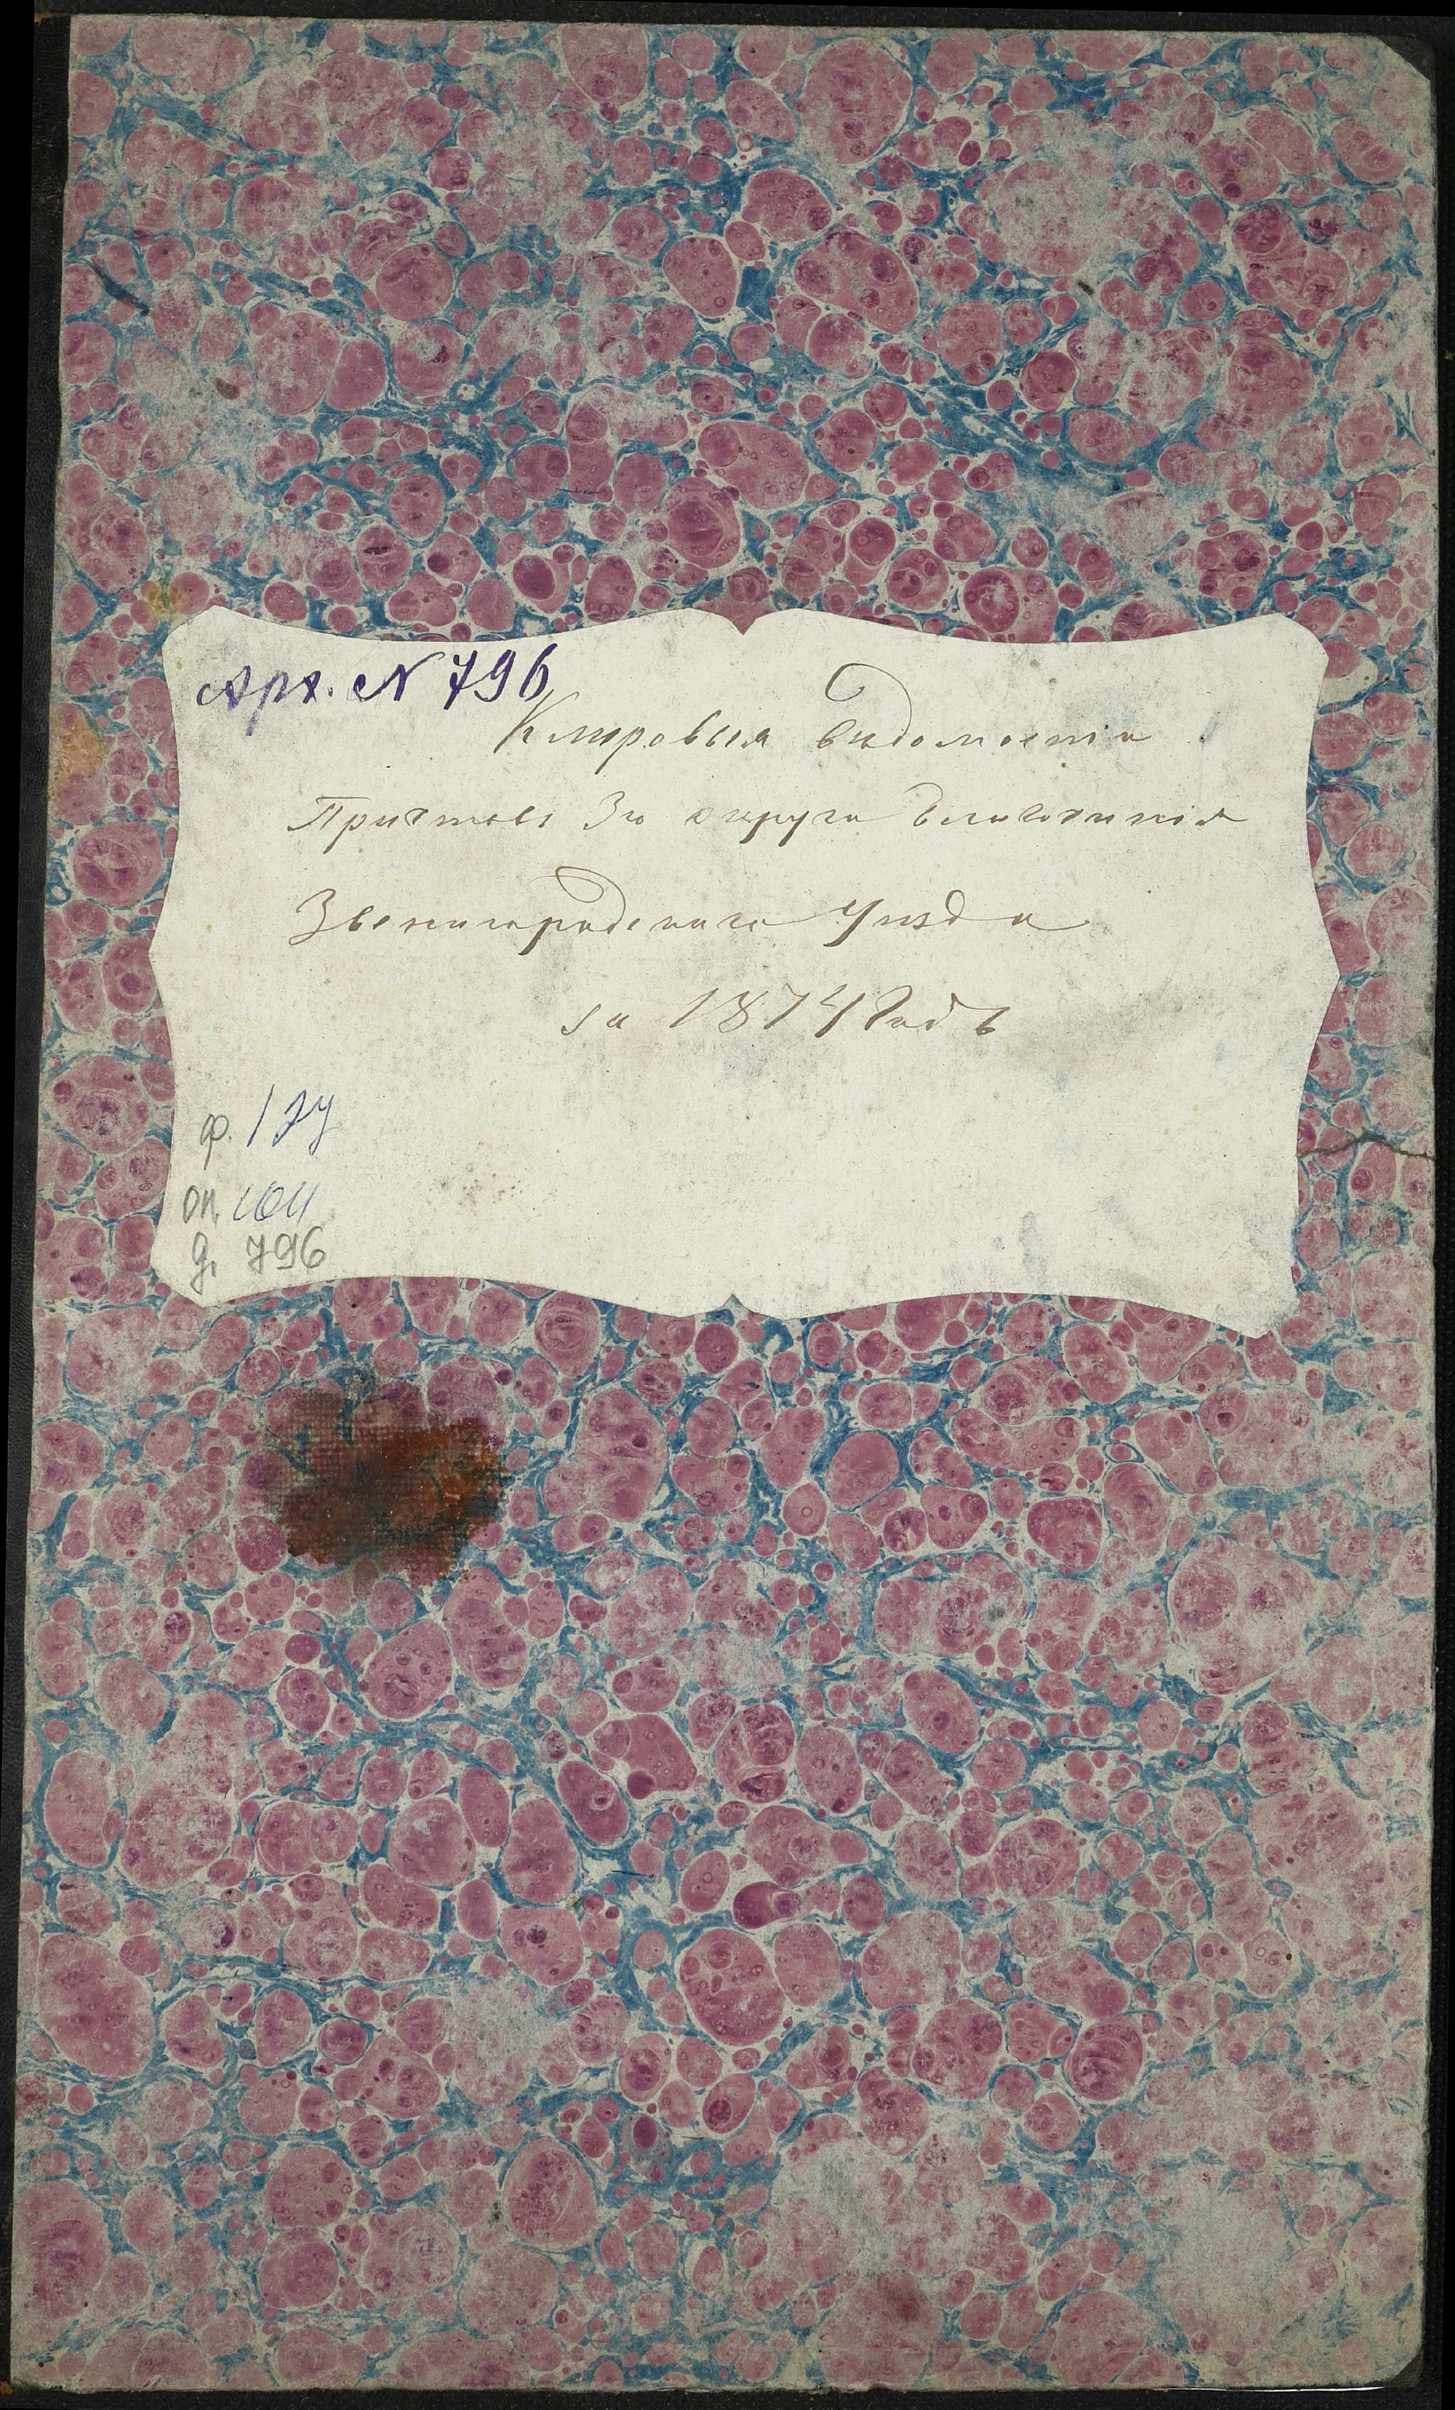 Арх. N 796
Клировыя вѣдомости
Причтовъ 3го округа благочинія
Звенигородскаго Уѣзда
за 1874 Годъ
ф. 127
оп.
д. 796